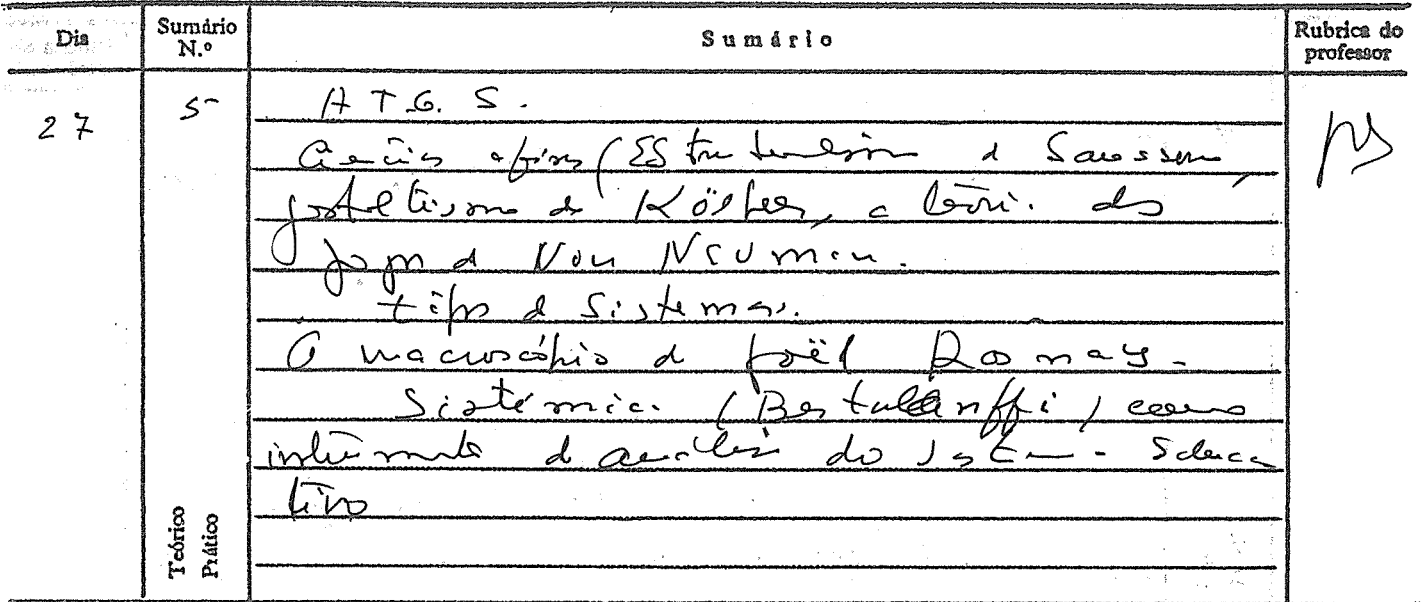 Dia
Sumário N.º
Sumário
Rubrica do professor
27
5
A T.G.S.
Ciências afins (Estruturalismo d Saussure,
gestaltismo de Köhler, a teoria dos
jogos d Von Neuman.
tipos d Sistemas.
O macroscópio d Joël Rosnay-
Sistémica (Bertalanffi) como
instrumento d análise do Sistema Educa
tivo
Teórico
Prático